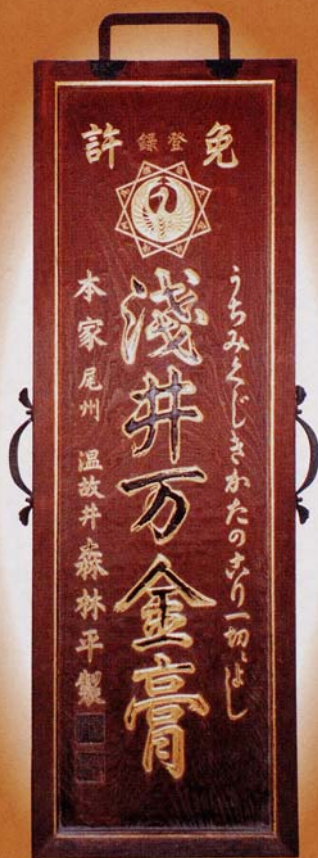 免許
登録
うちみくじきかたのこり一切によし
浅井万金膏
本家尾州 温故井 森林平製